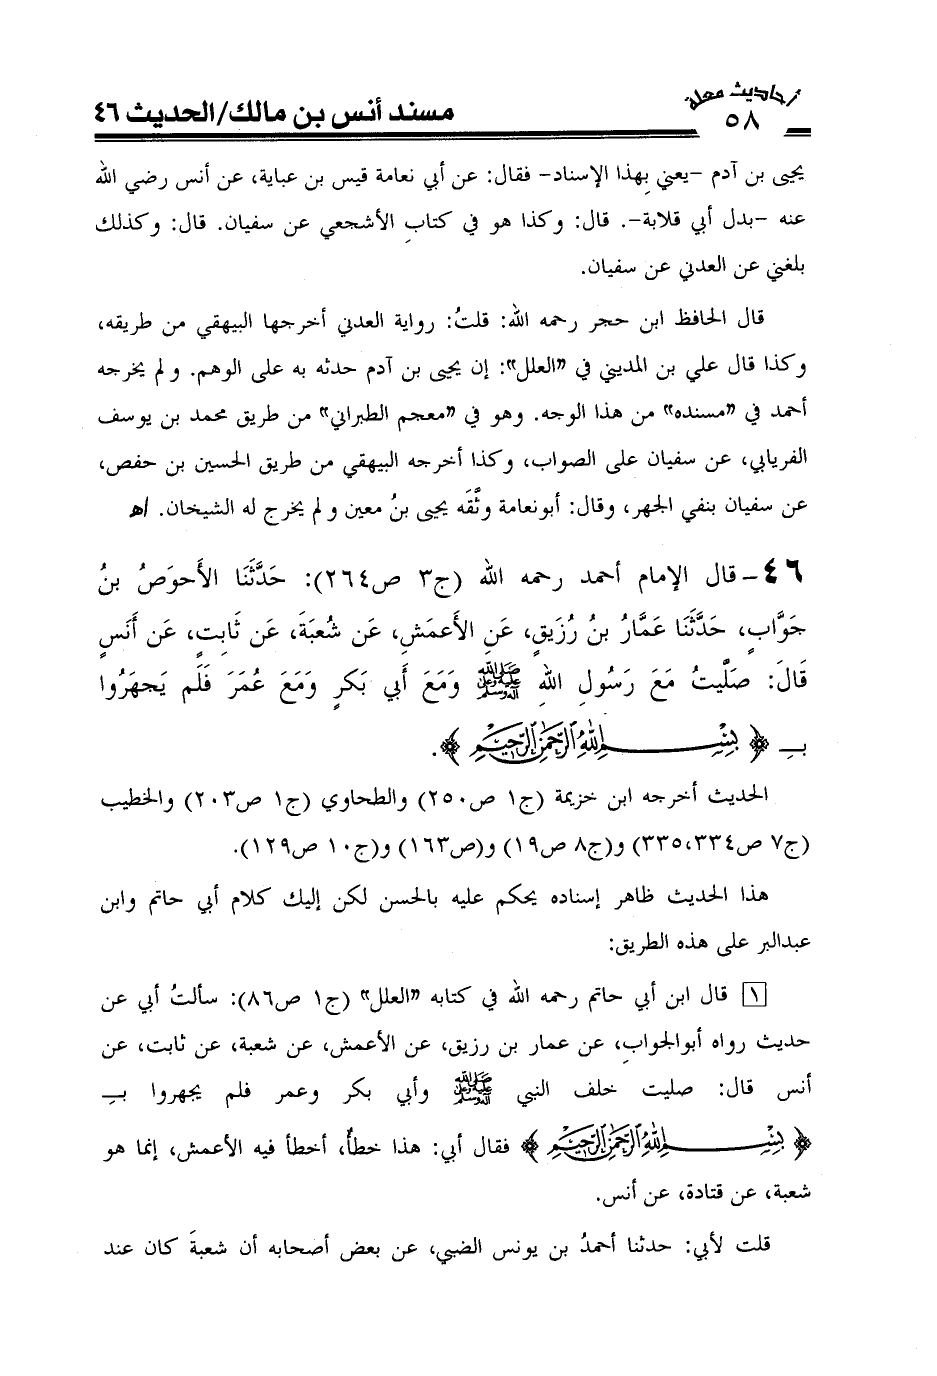 أحاديث معلة
٥٨
مسند أنس بن مالك/الحديث ٤٦
يحيى بن آدم –يعني بهذا الإسناد– فقال: عن أبي نعامة قيس بن عباية، عن أنس رضي الله
عنه –بدل أبي قلابة–. قال: وكذا هو في كتابِ الأشجعي عن سفيان. قال: وكذلك
بلغني عن العدني عن سفيان.
قال الحافظ ابن حجر رحمه الله: قلتُ: رواية العدني أخرجها البيهقي من طريقه،
وكذا قال علي بن المديني في «العلل»: إن يحيى بن آدم حدثه به على الوهم. ولم يخرجه
أحمد في «مسنده» من هذا الوجه. وهو في «معجم الطبراني» من طريق محمد بن يوسف
الفريابي، عن سفيان على الصواب، وكذا أخرجه البيهقي من طريق الحسين بن حفص،
عن سفيان بنفي الجهر، وقال: أبونعامة وثَّقَه يحيى بنُ معين ولم يخرج له الشيخان. اﻫ
٤٦– قال الإمام أحمد رحمه الله (ج٣ ص٢٦٤): حَدَّثَنَا الأَحوَصُ بنُ
جَوَّابٍ، حَدَّثَنَا عَمَّارُ بنُ رُزَيقٍ، عَنِ الأَعمَشِ، عَن شُعبَةَ، عَن ثَابِتٍ، عَن أَنَسٍ
قَالَ: صَلَّيتُ مَعَ رَسُولِ اللهِ ﷺ وَمَعَ أَبي بَكرٍ وَمَعَ عُمَرَ فَلَم يَجهَرُوا
بـ ﴿بِسْمِ اللَّهِ الرَّحْمَٰنِ الرَّحِيمِ﴾.
الحديث أخرجه ابن خزيمة (ج١ ص٢٥٠) والطحاوي (ج١ ص٢٠٣) والخطيب
(ج٧ ص٣٣٥،٣٣٤) و(ج٨ ص١٩) و(ص١٦٣) و(ج١٠ ص١٢٩).
هذا الحديث ظاهر إسناده يحكم عليه بالحسن لكن إليك كلام أبي حاتم وابن
عبدالبر على هذه الطريق:
١ قال ابن أبي حاتم رحمه الله في كتابه «العلل» (ج١ ص٨٦): سألتُ أبي عن
حديث رواه أبوالجوابِ، عن عمار بن رزيق، عن الأعمش، عن شعبة، عن ثابت، عن
أنس قال: صليت خلف النبي ﷺ وأبي بكر وعمر فلم يجهروا بـ
﴿بِسْمِ اللَّهِ الرَّحْمَٰنِ الرَّحِيمِ﴾ فقال أبي: هذا خطأٌ، أخطأ فيه الأعمش، إنما هو
شعبة، عن قتادة، عن أنس.
قلت لأبي: حدثنا أحمدُ بن يونس الضبي، عن بعض أصحابه أن شعبةَ كان عند